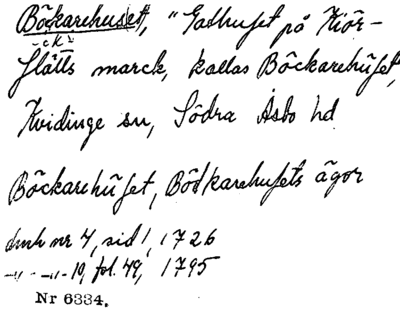 Böckarehuset, "Gathuset på Kiör-
-ck-
slätts marck, kallas Böckarehūset,
Kvidinge sn, Södra Åsbo hd
Böckarehūset, Bödkarehusets ägor
dmh nr 4, sid 1, 1726
-"- -"- 19, fol. 49, 1795
Nr 6334.